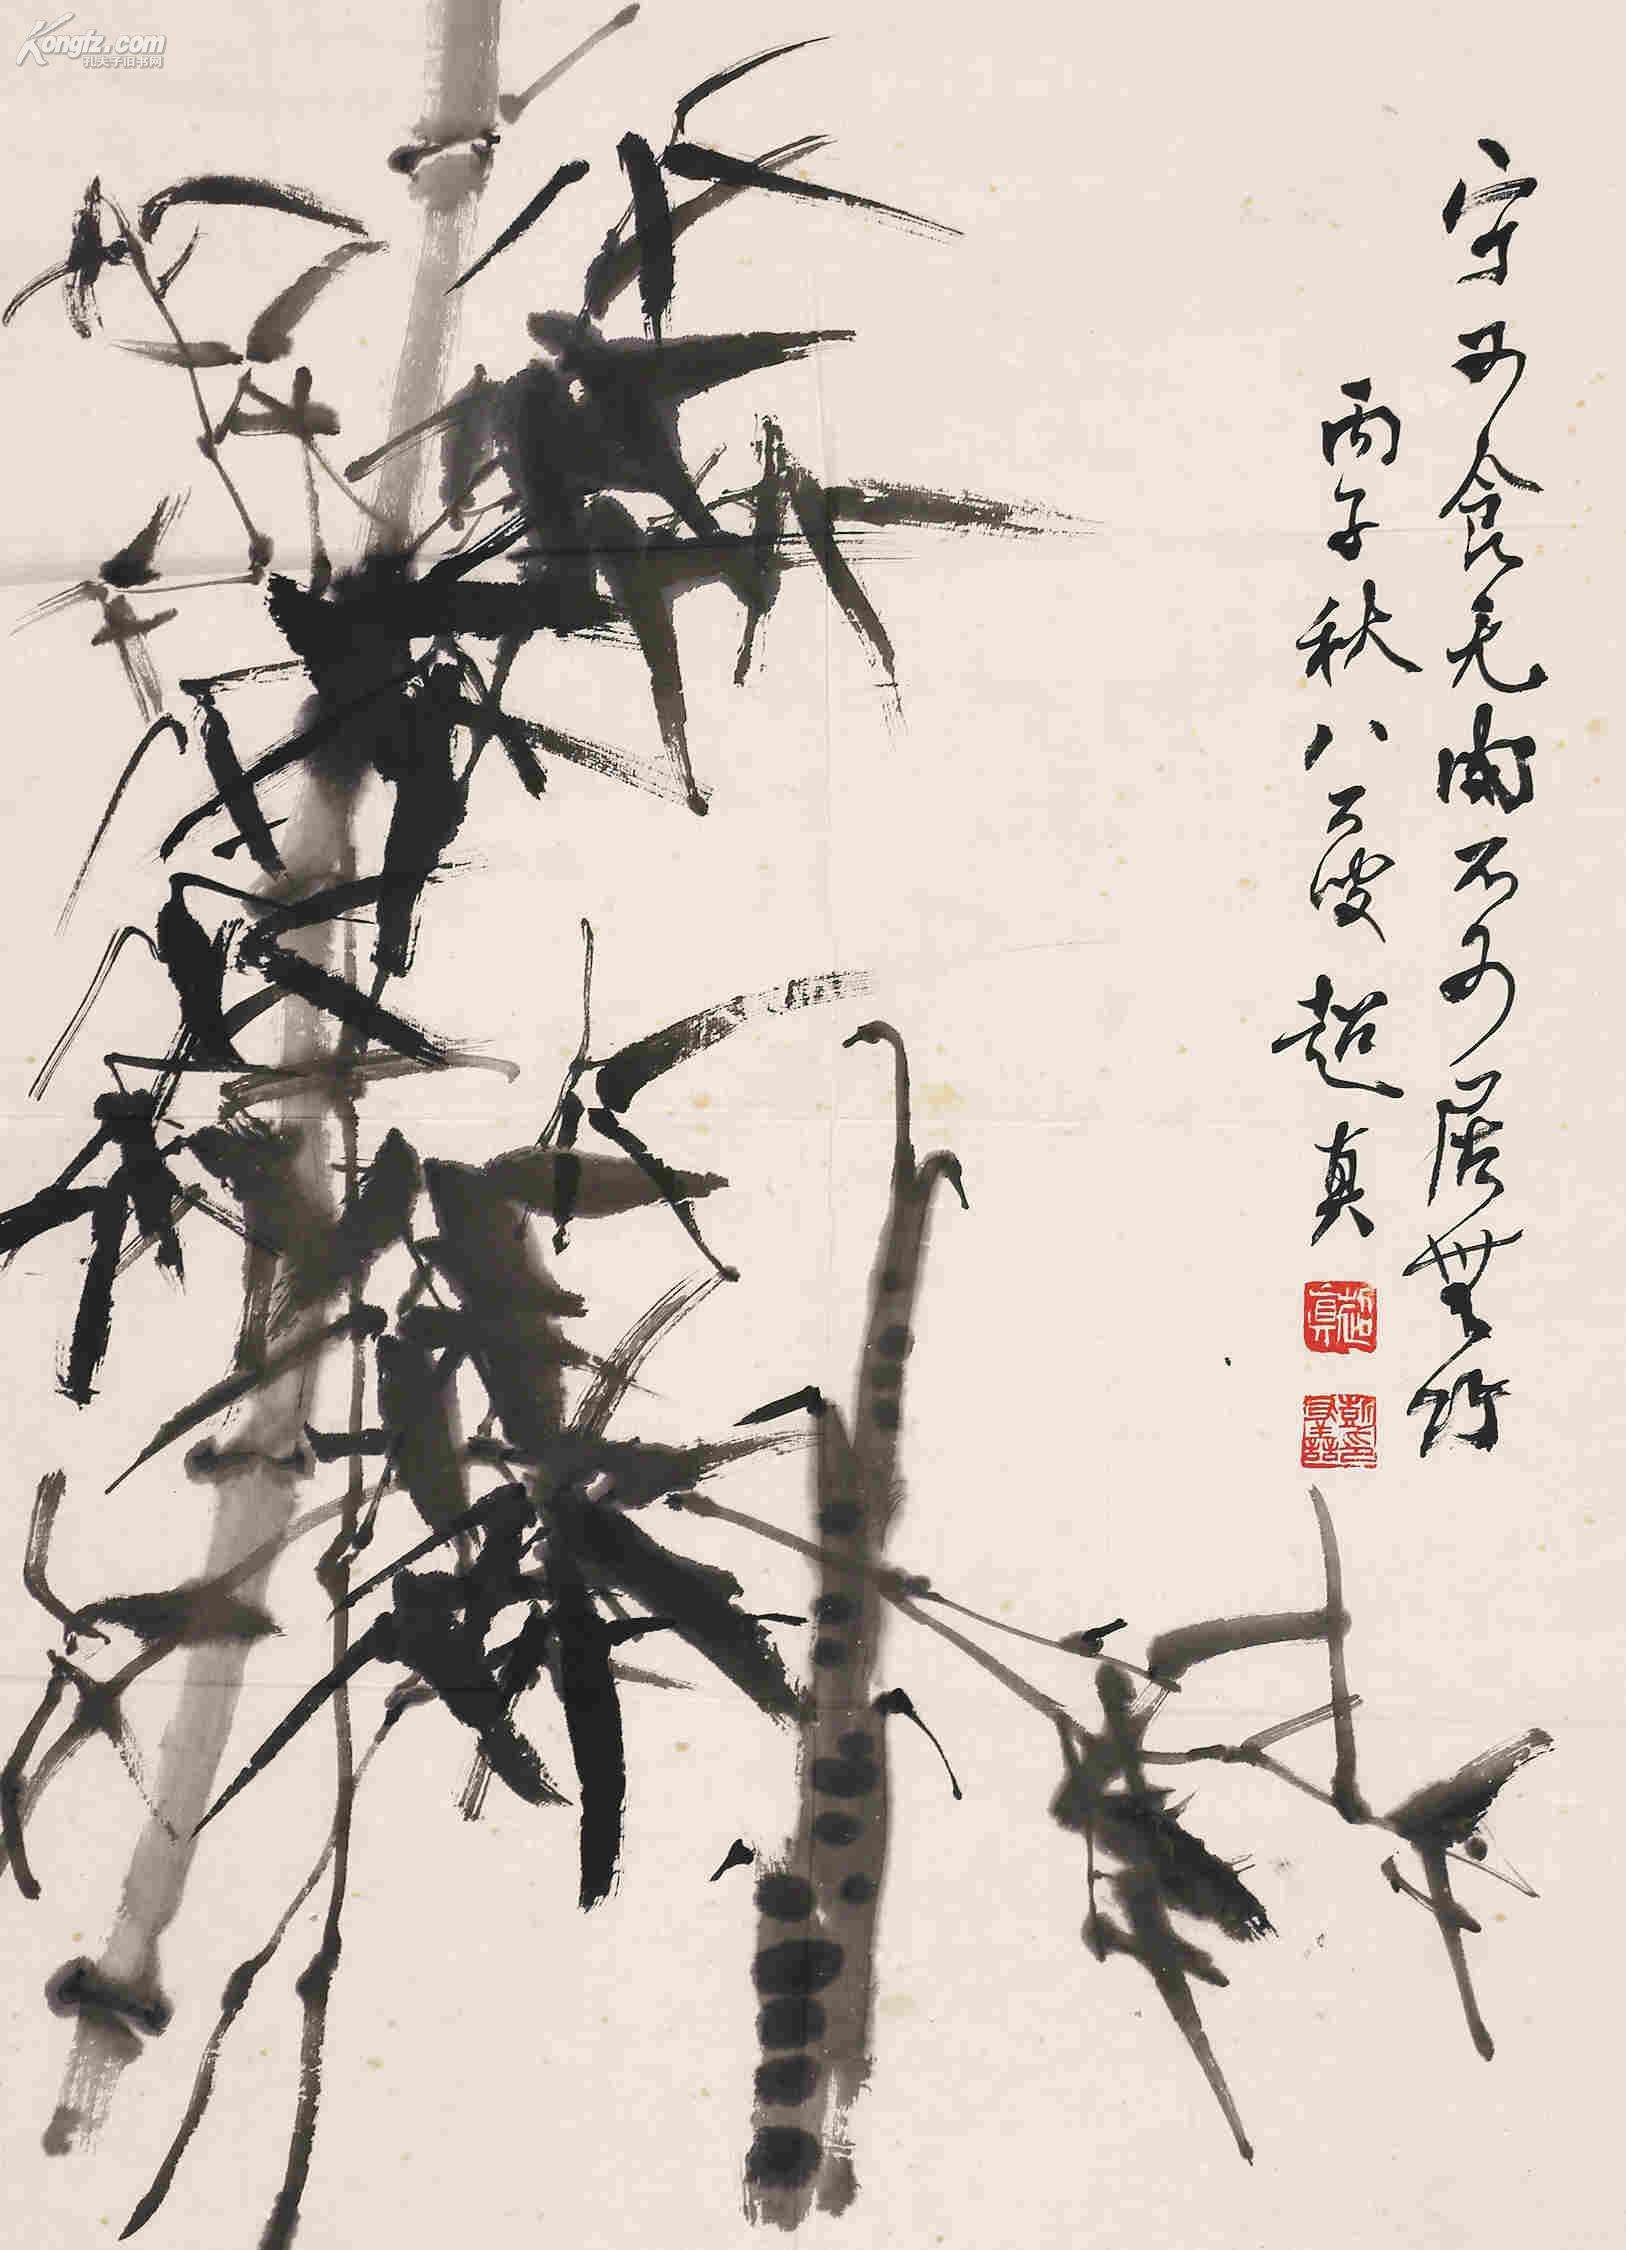 Kongfz.com
孔夫子旧书网
宁可食无肉不可居無竹
丙子秋八叟超真
超真